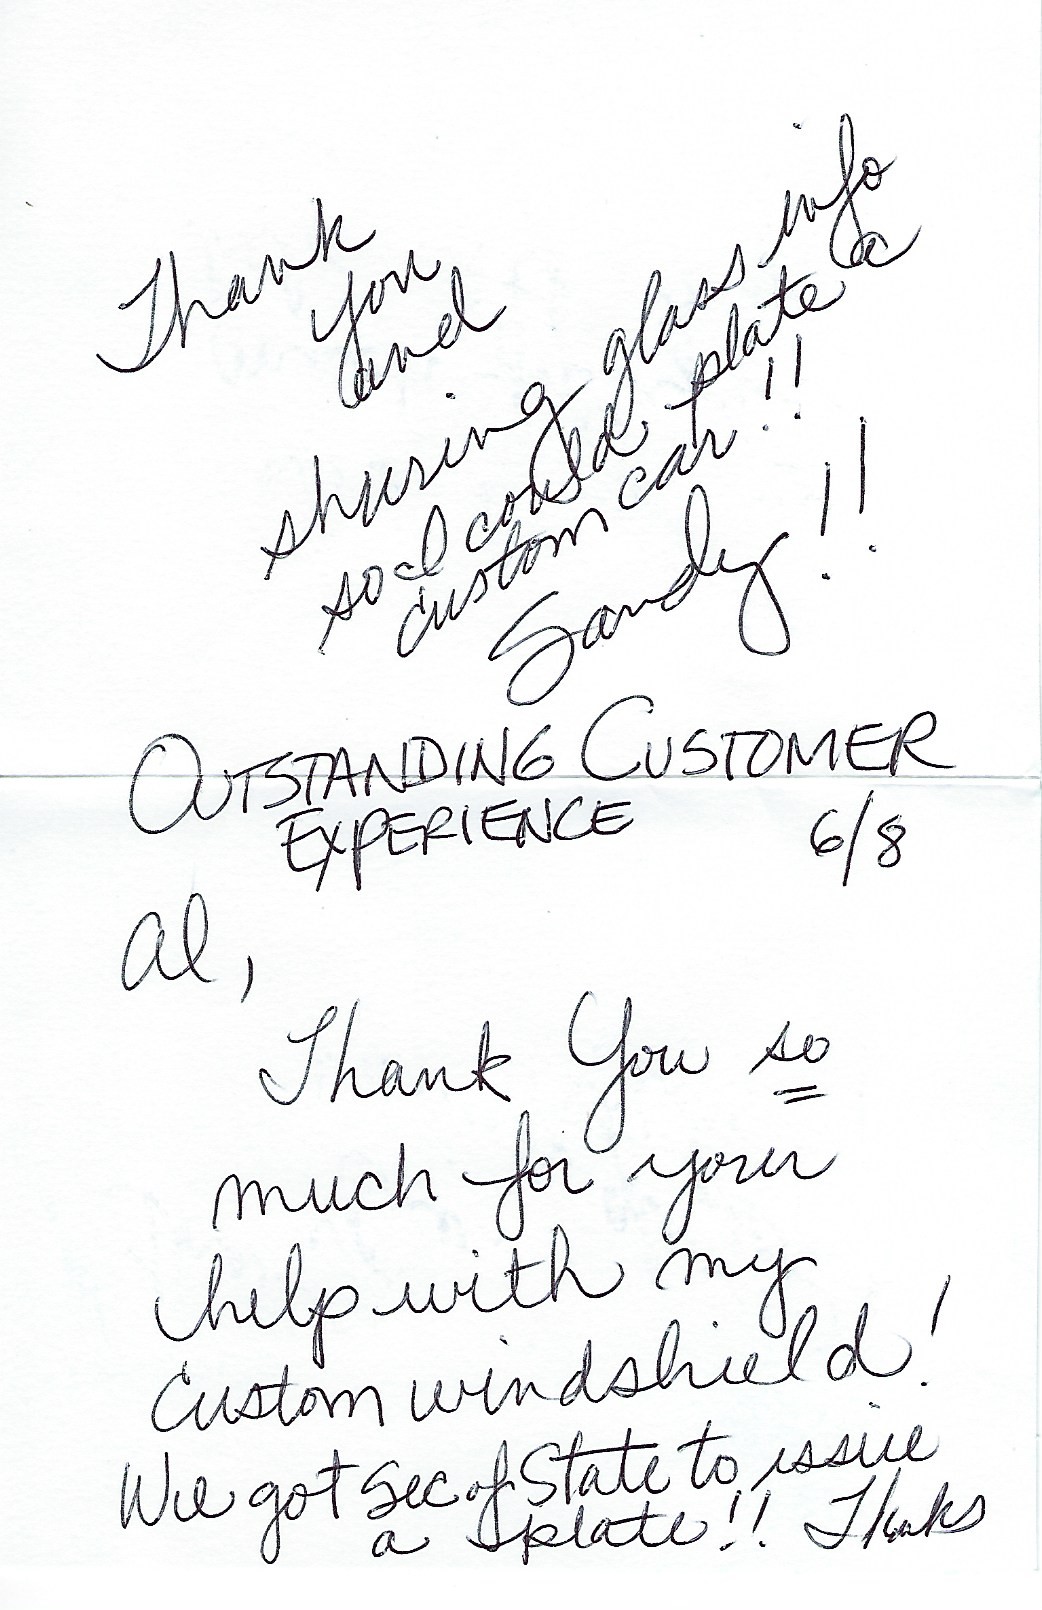 Thank
you
and
sharing glass info
so I could plate a
custom car!!
Sandy!!
OUTSTANDING CUSTOMER
EXPERIENCE 6/8
Al,
Thank You so
much for your
help with my
custom windshield!
We got Sec of State to issue
a plate!! Thanks